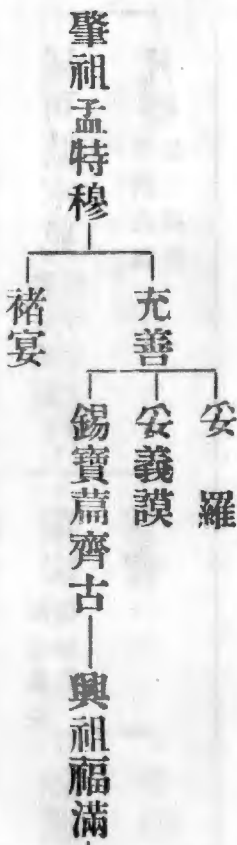 肇祖孟特穆
充善
褚宴
妥羅
妥義謨
錫寶萹齊古
興祖福滿